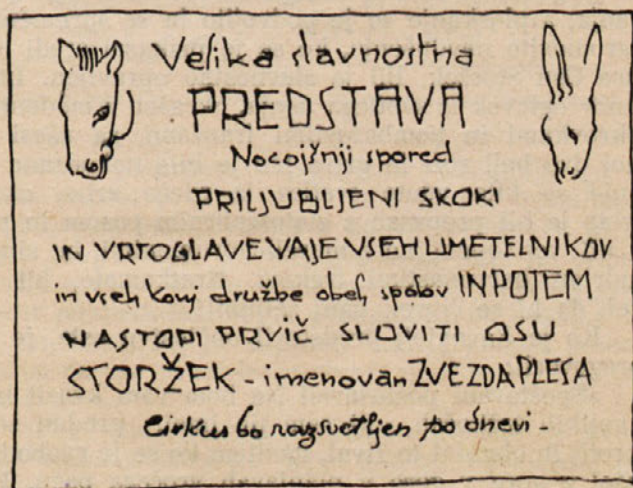 Velika slavnostna
PREDSTAVA
Nocojšnji spored
PRILJUBLJENI SKOKI
IN VRTOGLAVE VAJE VSEH UMETELNIKOV
in vseh konj družbe obeh spolov IN POTEM
NASTOPI PRVIČ SLOVITI OSU
STORŽEK - imenovan ZVEZDA PLESA
Cirkus bo razsvetljen po dnevi -